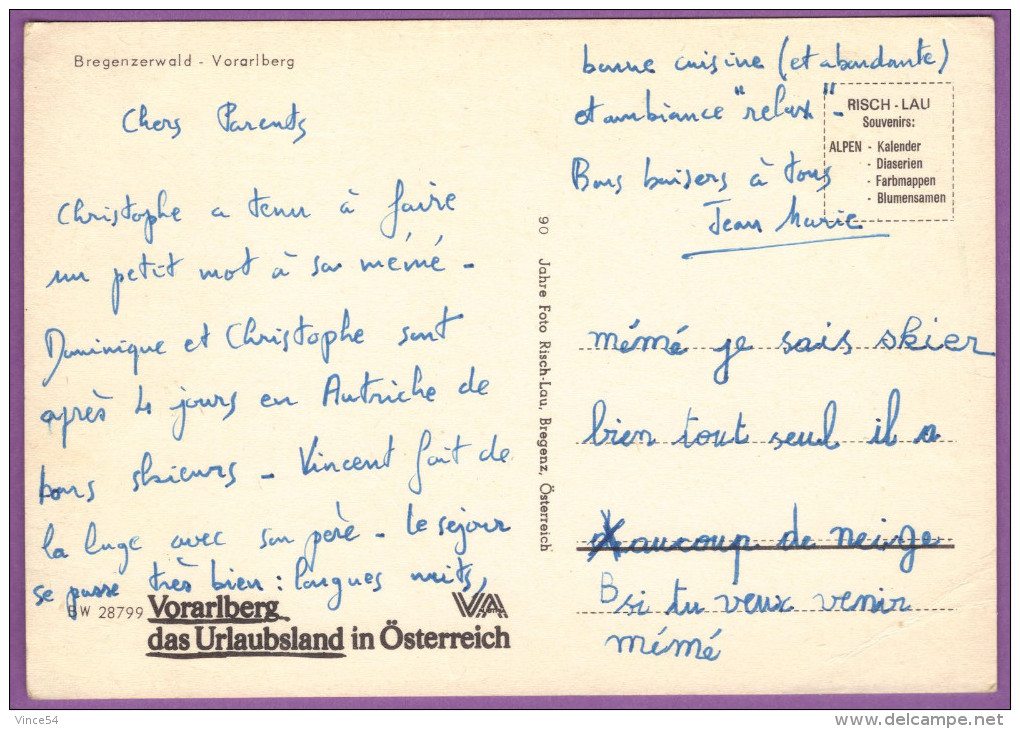 Bregenzerwald - Vorarlberg
Chers Parents
Christophe a tenu à faire
un petit mot à sa mémé -
Dominique et Christophe sont
après 4 jours en Autriche de
bons skieurs - Vincent fait de
la luge avec son père - Le séjour
se passe très bien : longues nuits,
BW 28799 Vorarlberg
das Urlaubsland in Österreich
VA
90 Jahre Foto Risch-Lau, Bregenz, Österreich
bonne cuisine (et abondante)
et ambiance "relax" -
Bons baisers à tous
Jean Marie
RISCH - LAU
Souvenirs:
ALPEN - Kalender
- Diaserien
- Farbmappen
- Blumensamen
mémé je sais skier
bien tout seul il a
aucoup de neige
B si tu veux venir
mémé
Vince54
http://www.delcampe.net